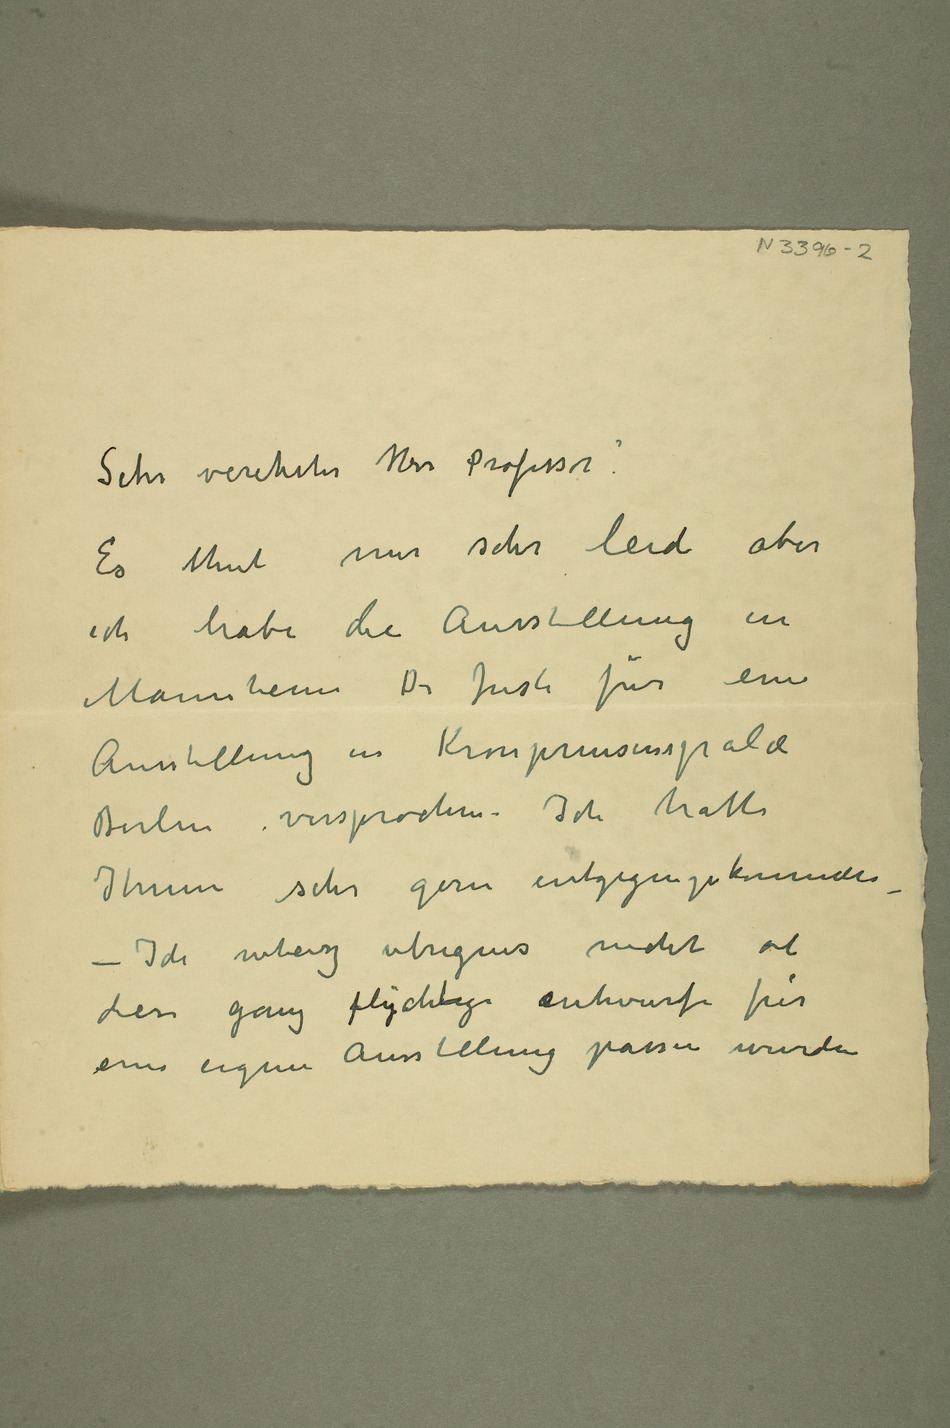 N 3396-2
Sehr verehrter Herr Professor!
Es thut mir sehr leid aber
ich habe die Ausstellung in
Mannheim Dr Justi für eine
Ausstellung in Kronprinsenspalæ
Berlin versprochen – Ich hatte
Ihnen sehr gern entgegengekommen –
– Ich weis übrigens nicht ob
diese ganz flychtige entwurfe für
eine eigene Ausstellung passen wurden